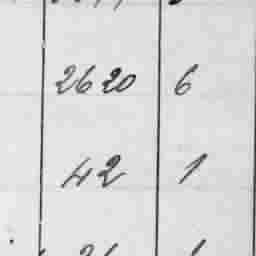 2620 6
42 1